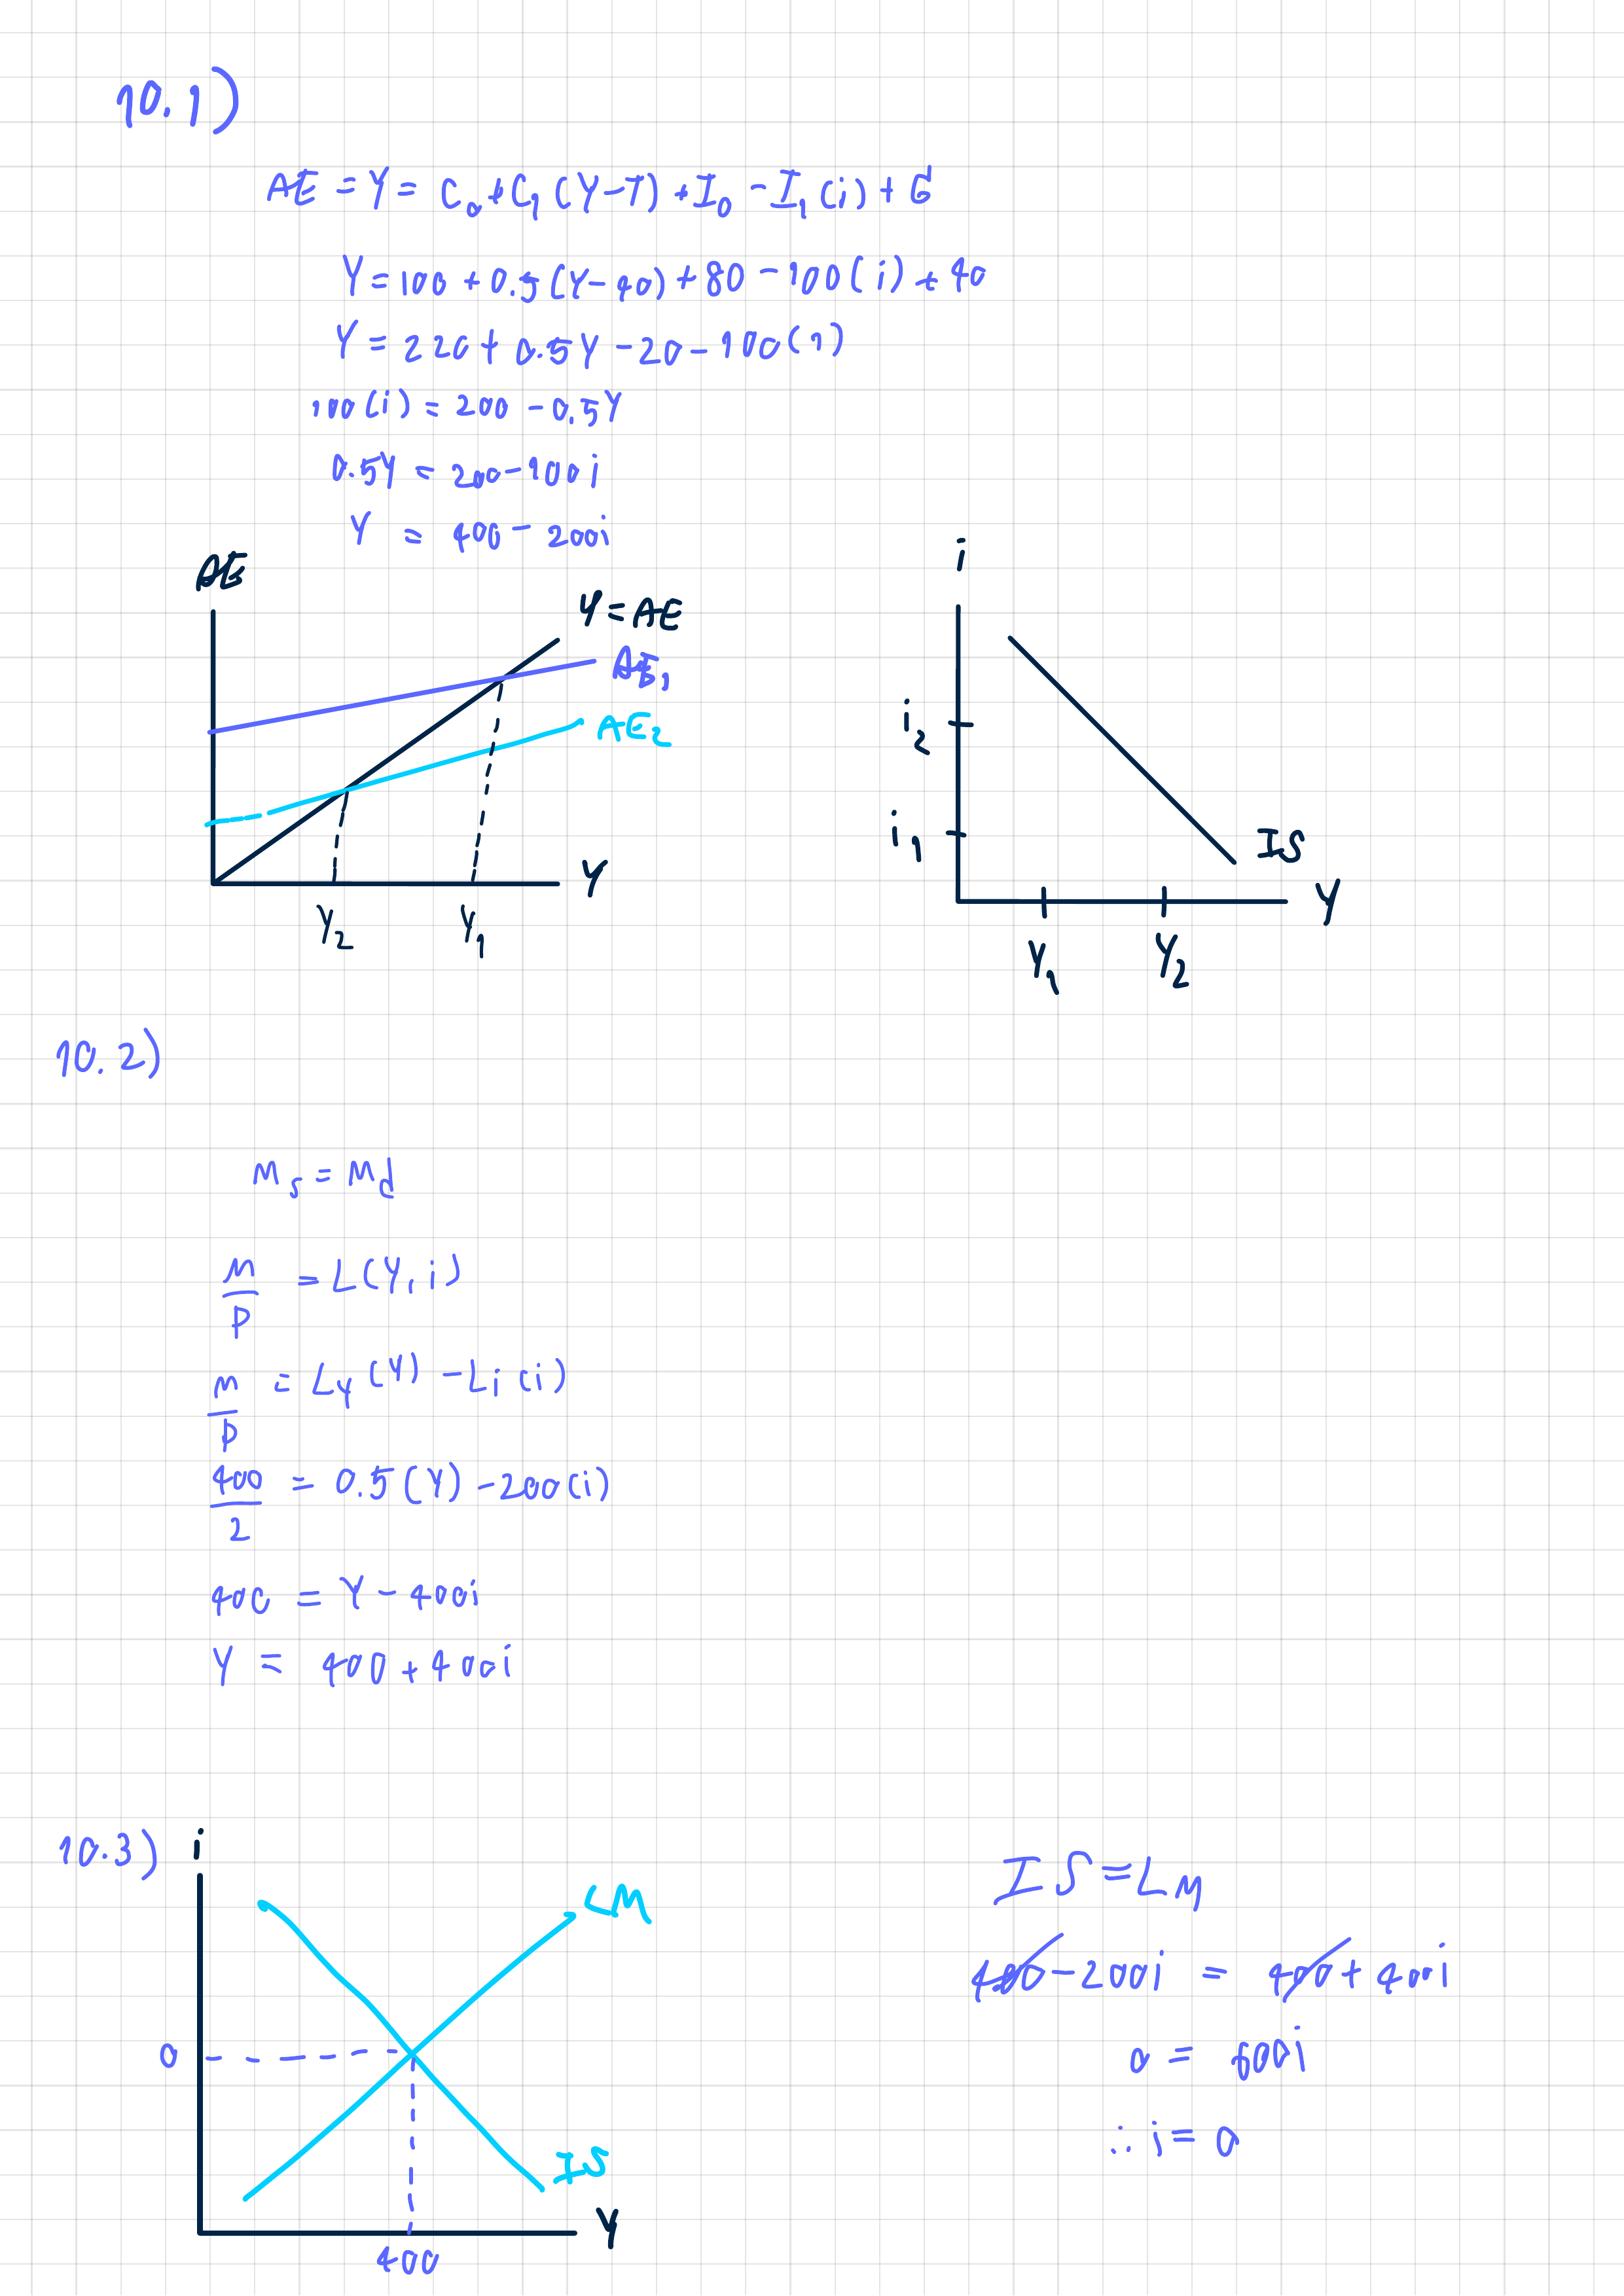 10.1)
AE = Y = C₀ + C₁ (Y-T) + I₀ - I₁ (i) + G
Y = 100 + 0.5 (Y-40) + 80 - 100 (i) + 40
Y = 220 + 0.5Y - 20 - 100 (i)
100 (i) = 200 - 0.5Y
0.5Y = 200 - 100i
Y = 400 - 200i
AE
Y = AE
AE₁
AE₂
Y
Y₂
Y₁
i
i₂
i₁
IS
Y
Y₁
Y₂
10.2)
Ms = Md
M/P = L(Y, i)
M/P = LY (Y) - Li (i)
400/2 = 0.5 (Y) - 200 (i)
400 = Y - 400i
Y = 400 + 400i
10.3)
i
LM
0
IS
Y
400
IS = LM
400 - 200i = 400 + 400i
0 = 600i
∴ i = 0